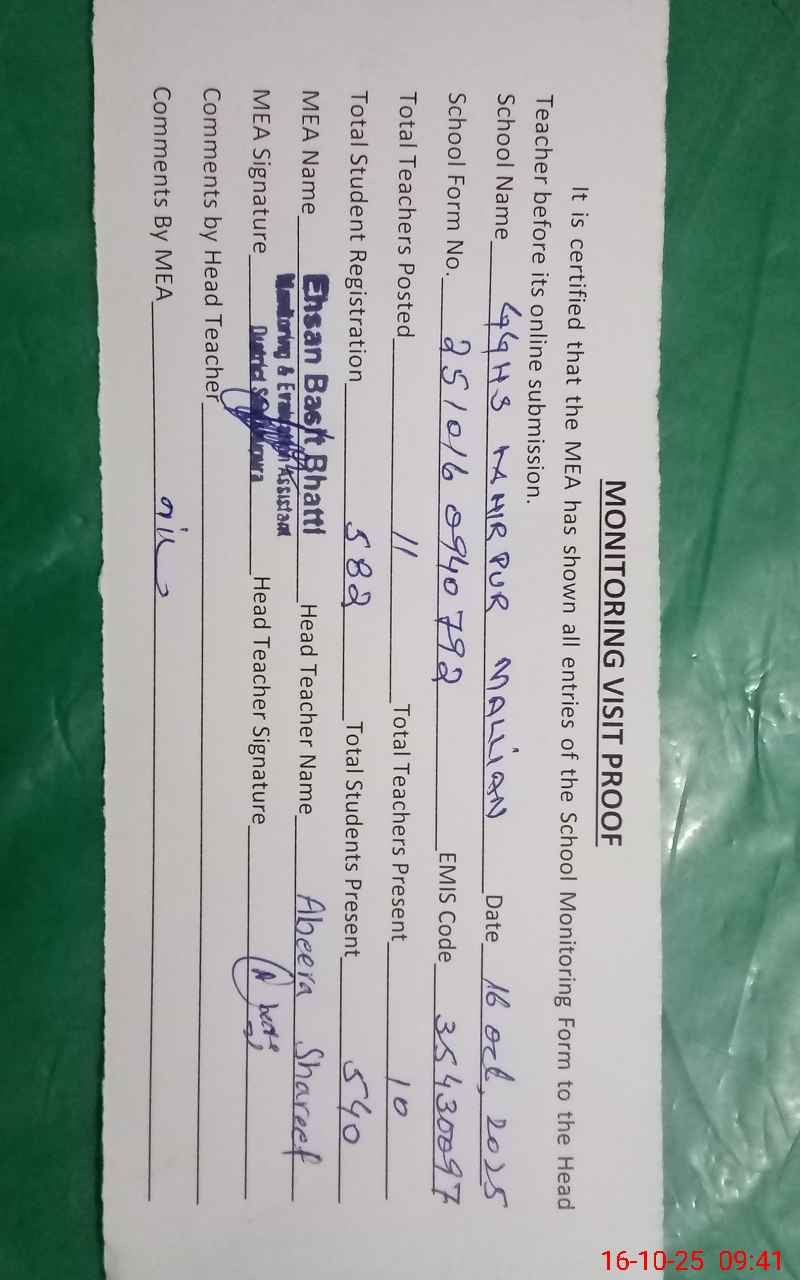 MONITORING VISIT PROOF
It is certified that the MEA has shown all entries of the School Monitoring Form to the Head
Teacher before its online submission.
School Name GGHS TAHIR PUR MALLIAN Date 16 Oct, 2025
School Form No. 251016 0940792 EMIS Code 35430097
Total Teachers Posted 11 Total Teachers Present 10
Total Student Registration 582 Total Students Present 540
MEA Name Ehsan Basit Bhatti Head Teacher Name Abeera Shareef
Monitoring & Evaluation Assistant
MEA Signature District Head Teacher Signature
Comments by Head Teacher
Comments By MEA
16-10-25 09:41